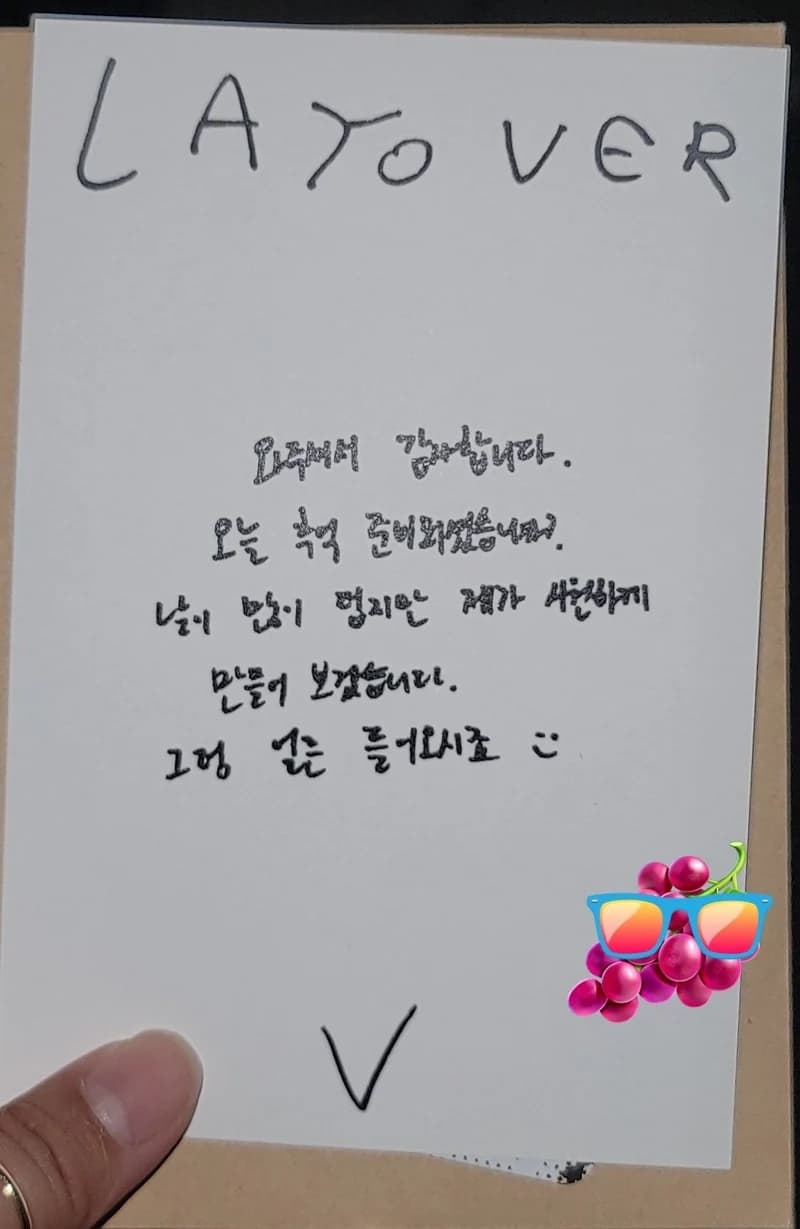 LAYOVER
와주셔서 감사합니다.
오늘 준비되셨습니까?
날이 많이 덥지만 제가 시원하게
만들어 보겠습니다.
그럼 얼른 들어오시죠 :)
V